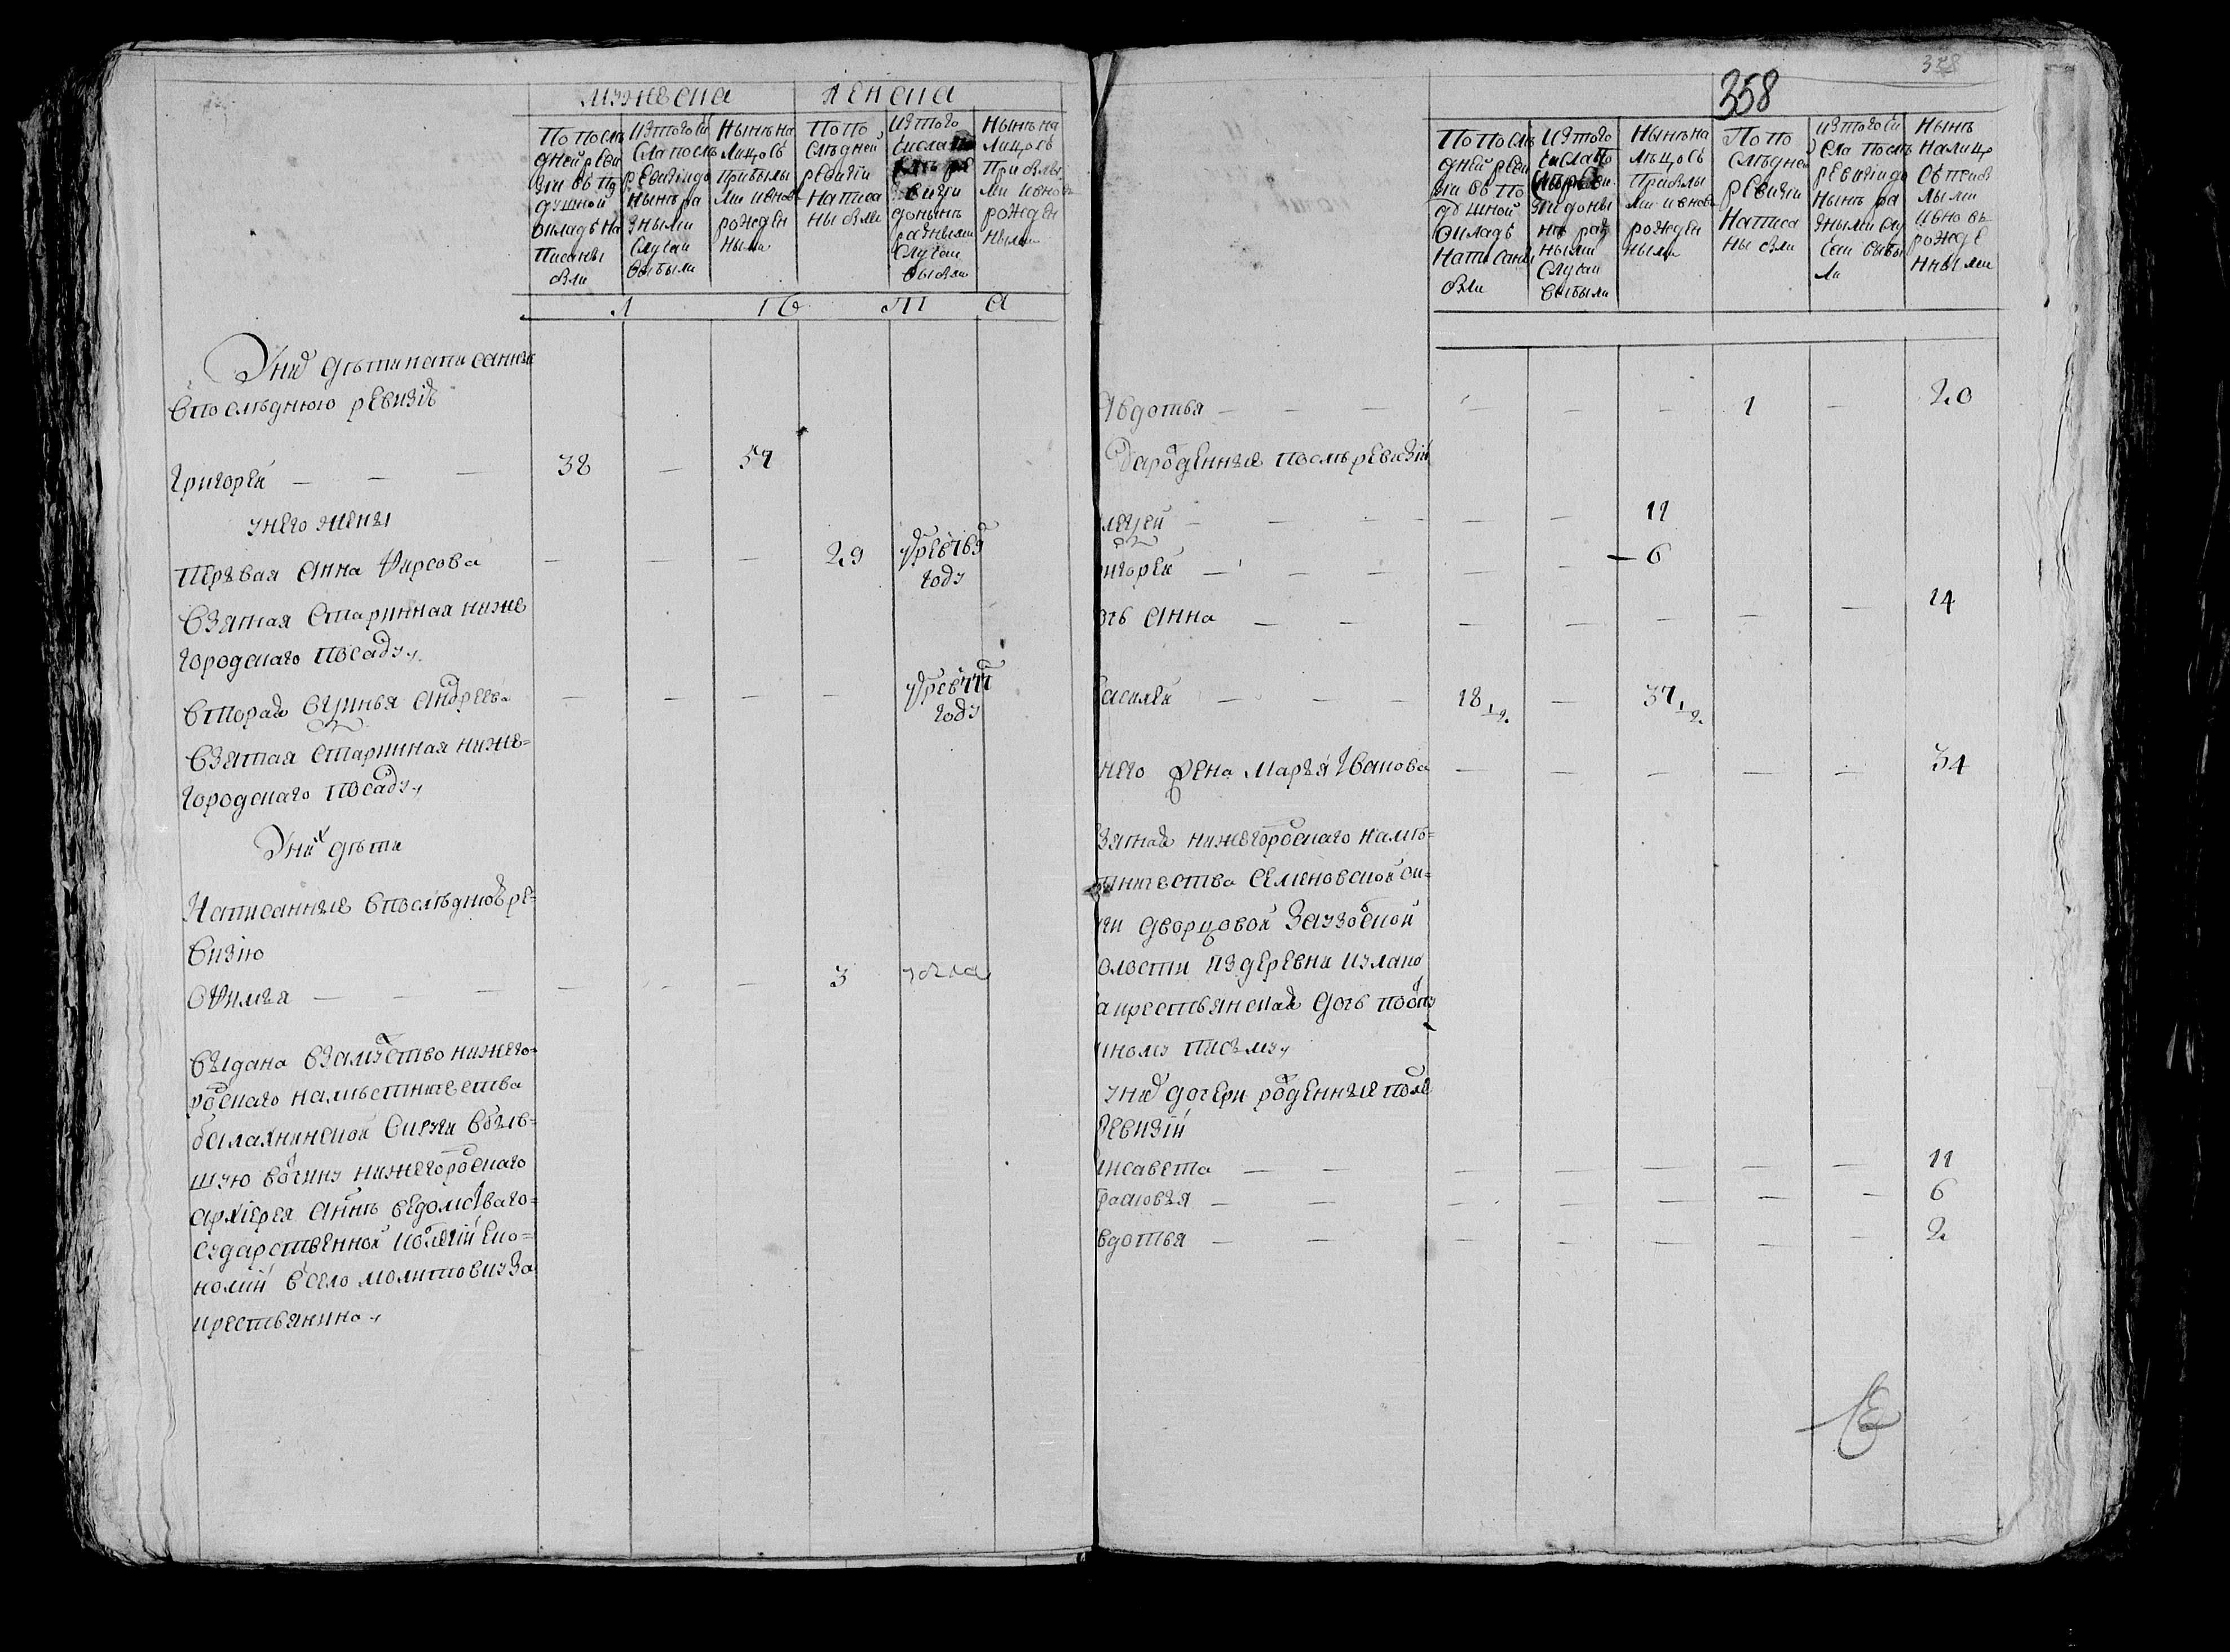 мужеска женска
По после
дней реви
зіи въ по
душной
окладъ на
писаны
были
Из того чи
сла после
ревизіи до
ныне ра
зными
случаи
выбыли
Ныне на
лицо съ
прибылы
ми и вновъ
рожден
ными
По по
следней
ревизіи
написа
ны были
Из того
числа по
сле ре
визіи
до ныне
разными
случаи
выбыли
Ныне на
лицо съ
прибылы
ми и вновъ
рожден
ными
Л ѣ т а
У них дети написанные
в последнюю ревизію
Григорей — — — 38 — 57
у него жены
первая Анна Фирсова — — — 29 умре в 769 году
взятая старинная ниже
городскаго посаду
вторая Ксинья Андреева — — — — умре в 777 году
взятая старинная ниже=
городскаго посаду
У них дети
Написанные в последнюю ре=
визію
Афимья — — — — — — 3
выдана в замужство нижего=
родскаго наместничества
балахнинской округи в бывъ=
шую вотчину нижегородскаго
архіерея а ныне ведомства го=
сударственной колегіи еко=
номіи в село молитовку за
крестьянина
358
По после
дней реви
зіи въ по
душной
окладъ
написаны
были
Из того
числа по
сле реви
зіи до ны
не раз
ными
случаи
выбыли
Ныне на
лицо съ
прибылы
ми и вновъ
рожден
ными
По по
следней
ревизіи
написа
ны были
Из того чи
сла после
ревизіи до
ныне ра
зными слу
чаи выбы
ли
Ныне
на лицо
съ прибы
лыми
и вновъ
рожде
нными
Авдотья — — — — — — 1 — 20
рожденные после ревизіи
лексей — — — — — — 11
ригорей — — — — — — 6
очь Анна — — — — — — — — 14
Василей — — — 18 1/2 — 37 1/2
у него жена Марья Иванова — — — — — 34
взятая нижегородскаго наме=
стничества семеновской ок=
руги дворцовой заузольской
волости из деревни
крестьянская дочь по отпу
скному письму
у них дочери рожденные после
ревизіи
лисавета — — — — — — — 11
расковья — — — — — — — 6
вдотья — — — — — — — 2